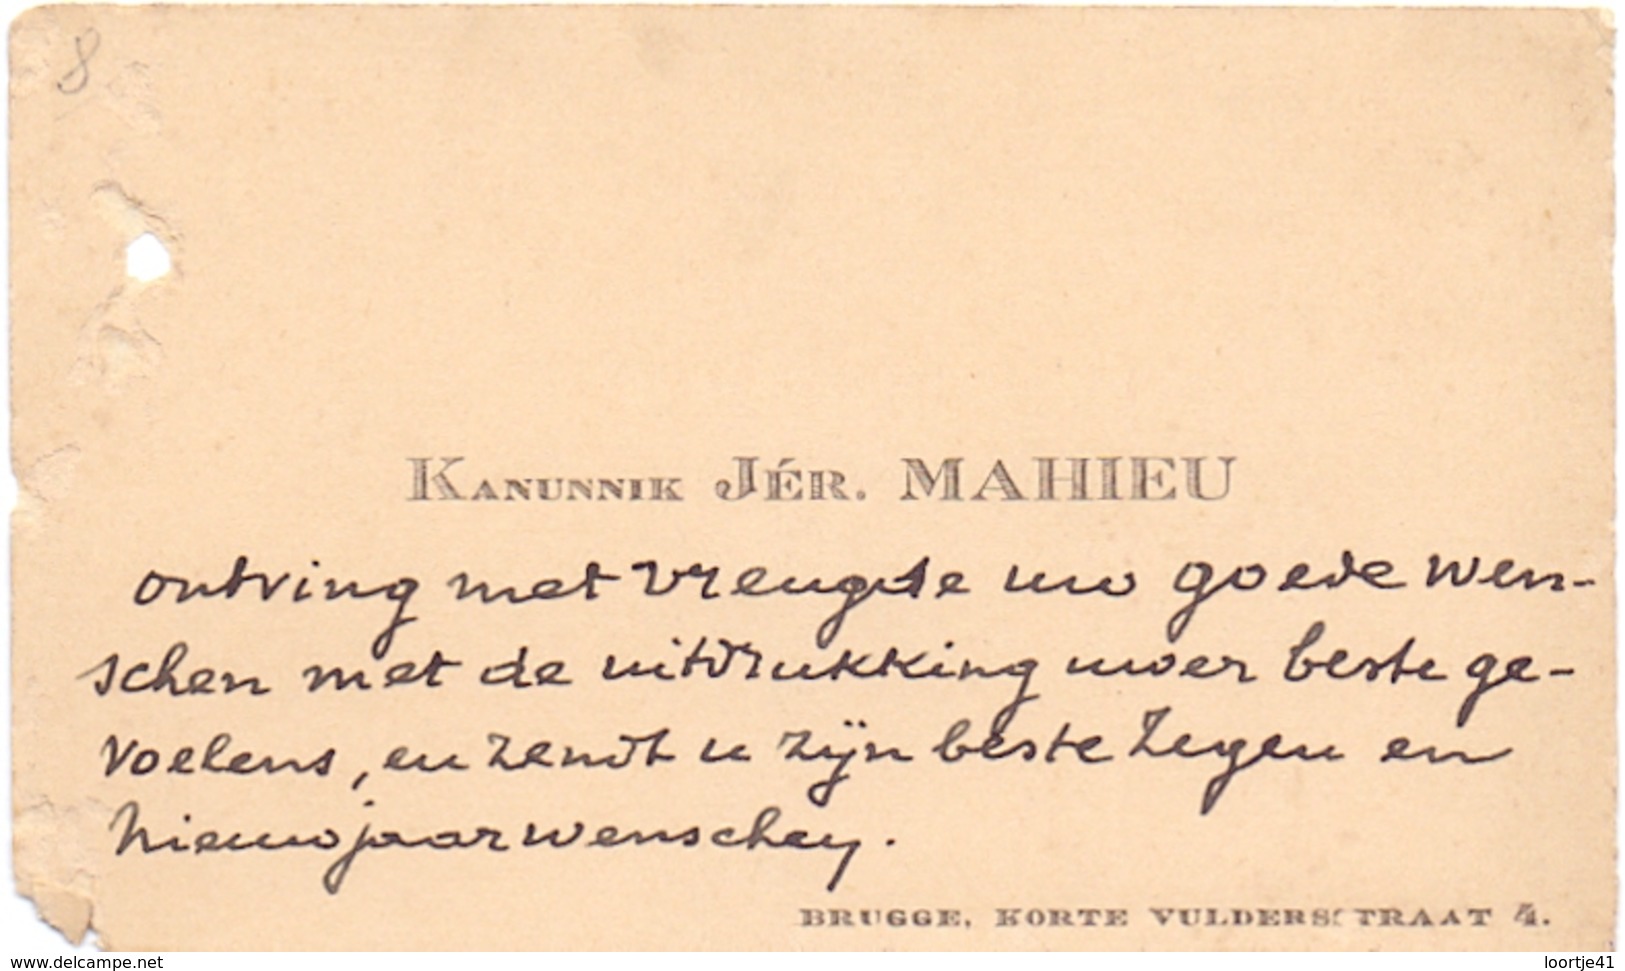 8
KANUNNIK JÉR. MAHIEU
ontving met vreugde uw goede wen-
schen met de uitdrukking uwer beste ge-
voelens, en zendt u zijn beste zegen en
Nieuwjaarwenschen.
BRUGGE, KORTE VULDERSSTRAAT 4.
www.delcampe.net
loortje41